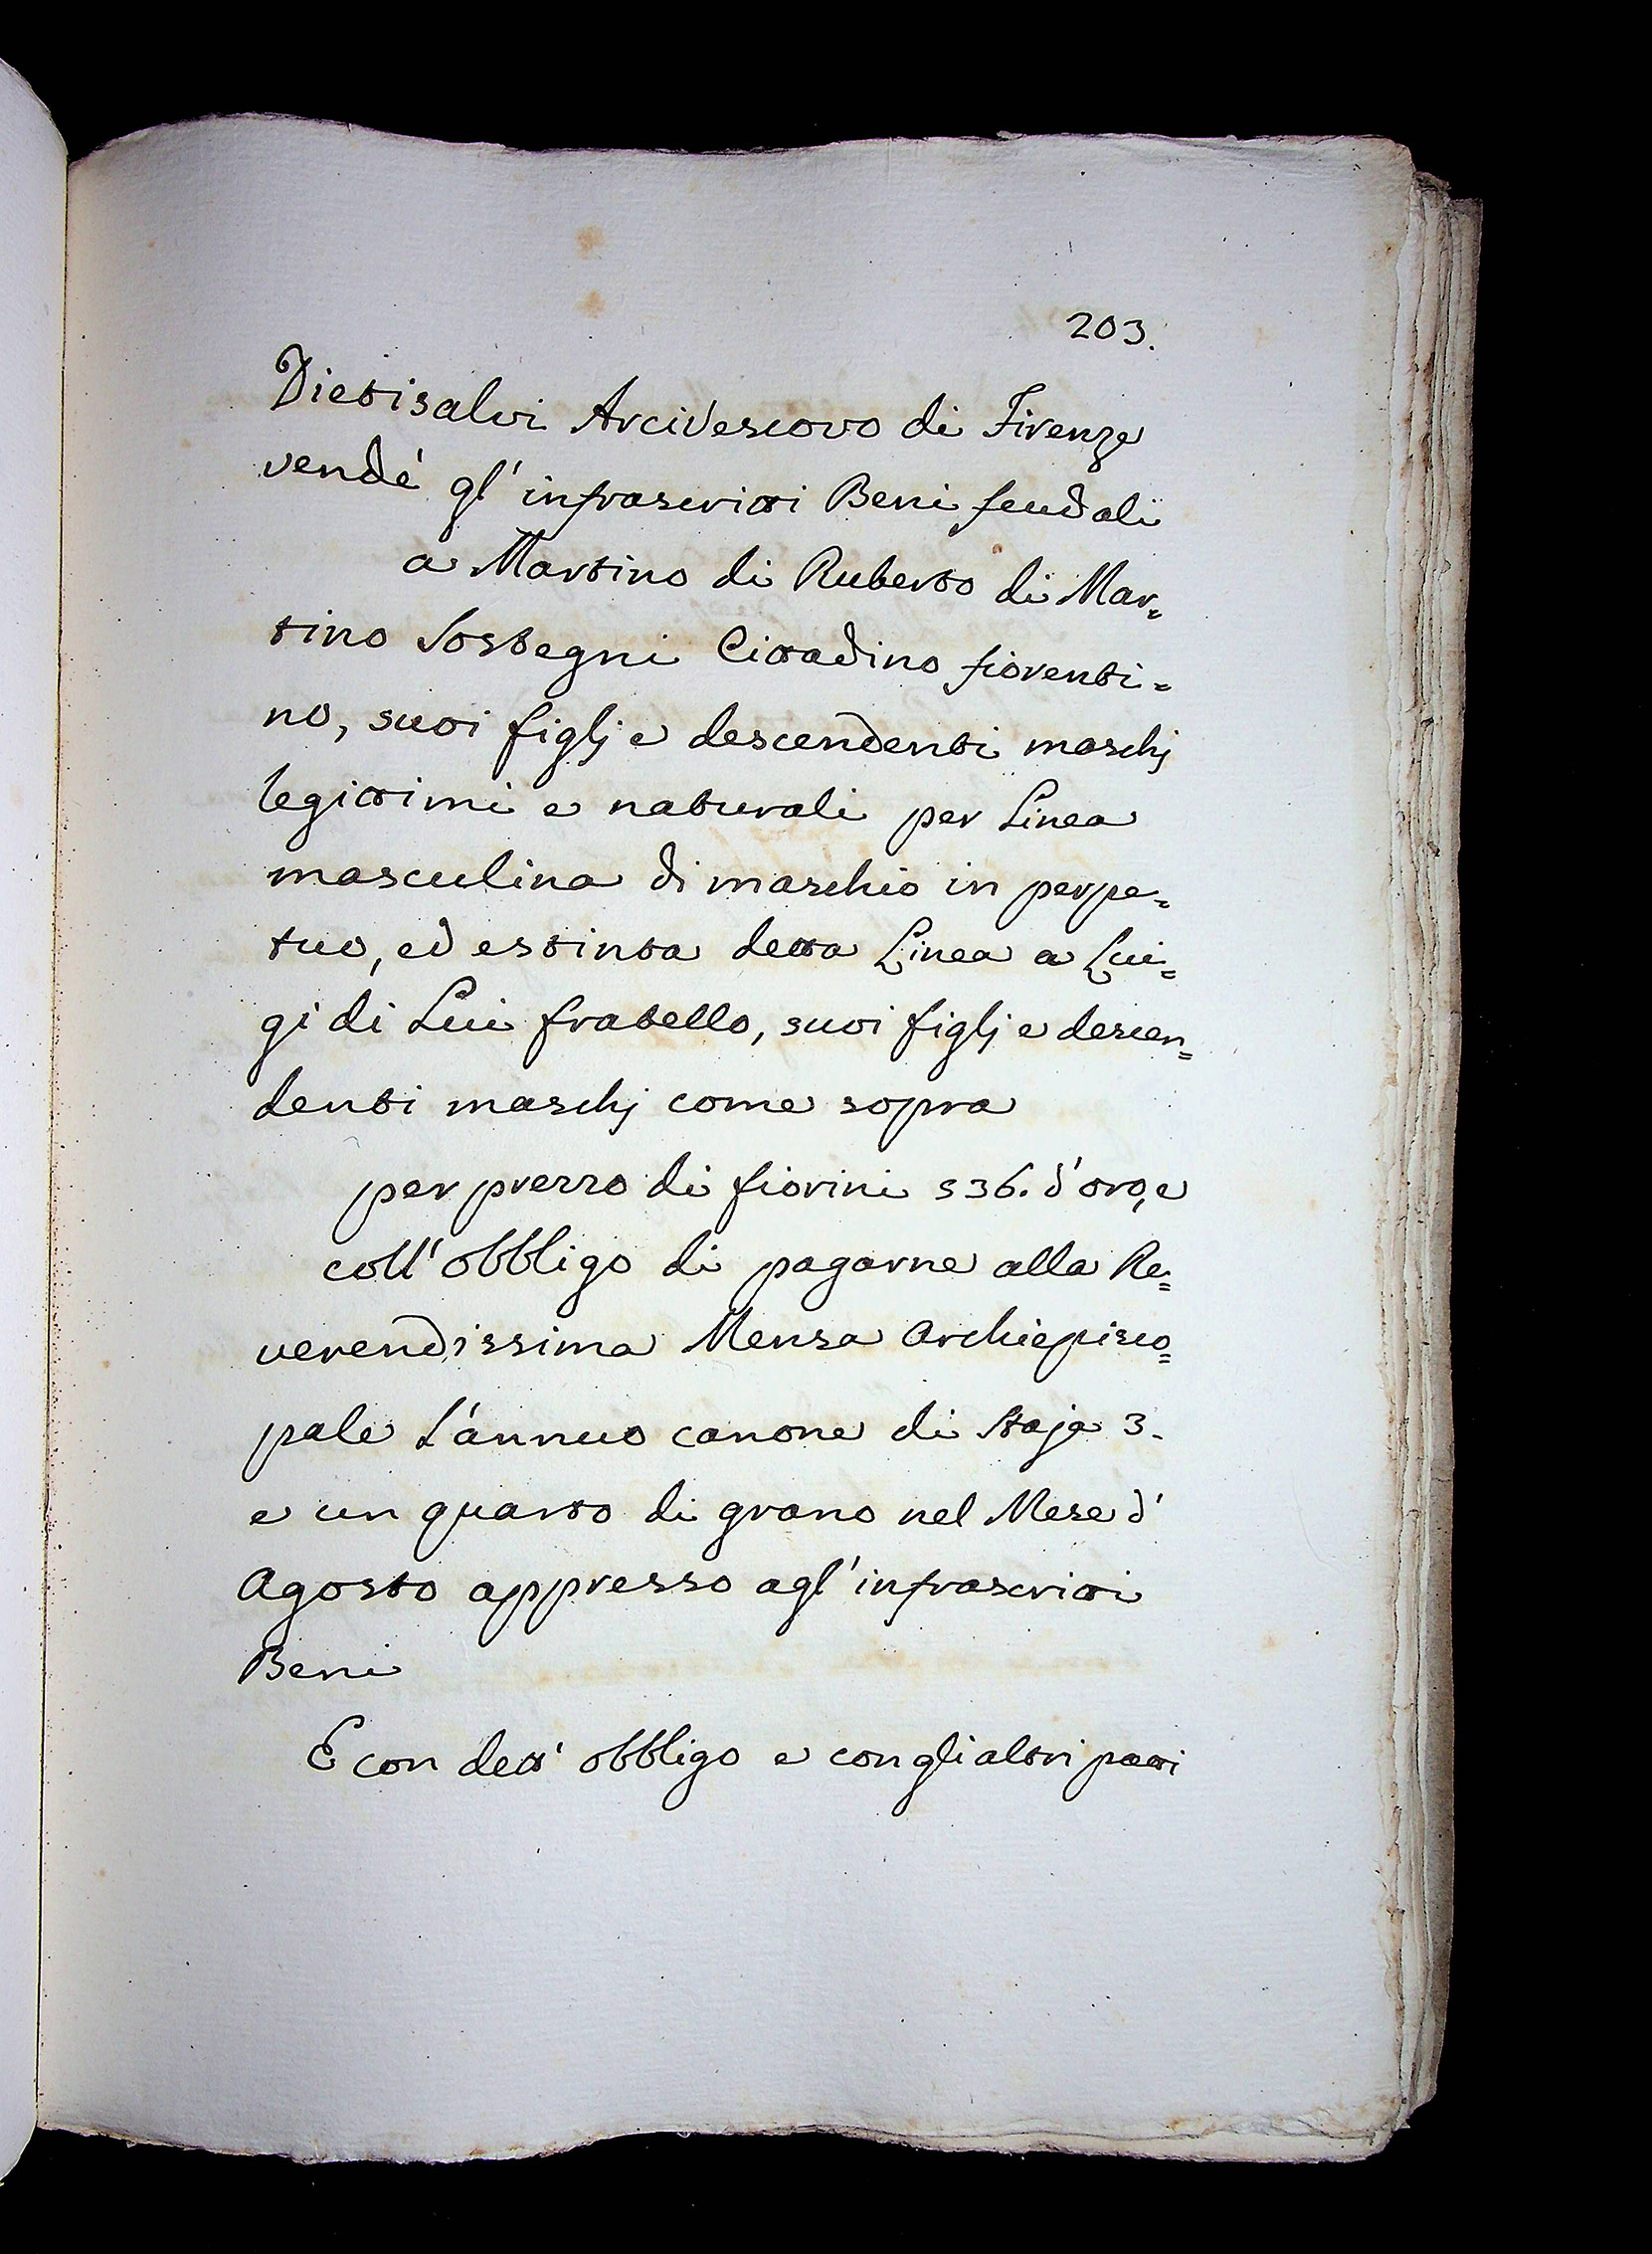 203.
Dietisalvi Arcivescovo di Firenze
vendè gl'infrascritti Beni feudali
a Martino di Ruberto di Mar=
tino Sostegni Cittadino fiorenti=
no, suoi figlj e descendenti maschj
legittimi e naturali per Linea
masculina di maschio in perpe=
tuo, ed estinta detta Linea a Lui=
gi di Lui fratello, suoi figlj e descen=
denti maschj come sopra
per prezzo di fiorini 536. d'oro, e
coll'obbligo di pagarne alla Re=
verendissima Mensa Archiepisco=
pale l'annuo canone di staja 3.
e un quarto di grano nel Mese d'
Agosto appresso agl'infrascritti
Beni
E con dett'obbligo e con gli altri patti